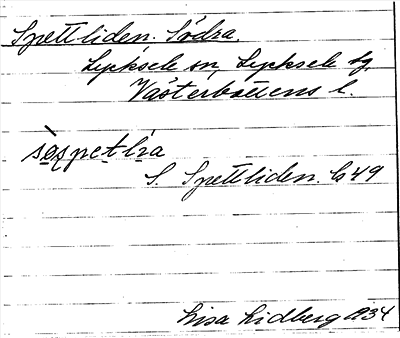 Spettliden. Södra.
Lycksele sn, Lycksele tg.
Västerbottens l.
S. Spettliden. C49
Lisa Lidberg 1934